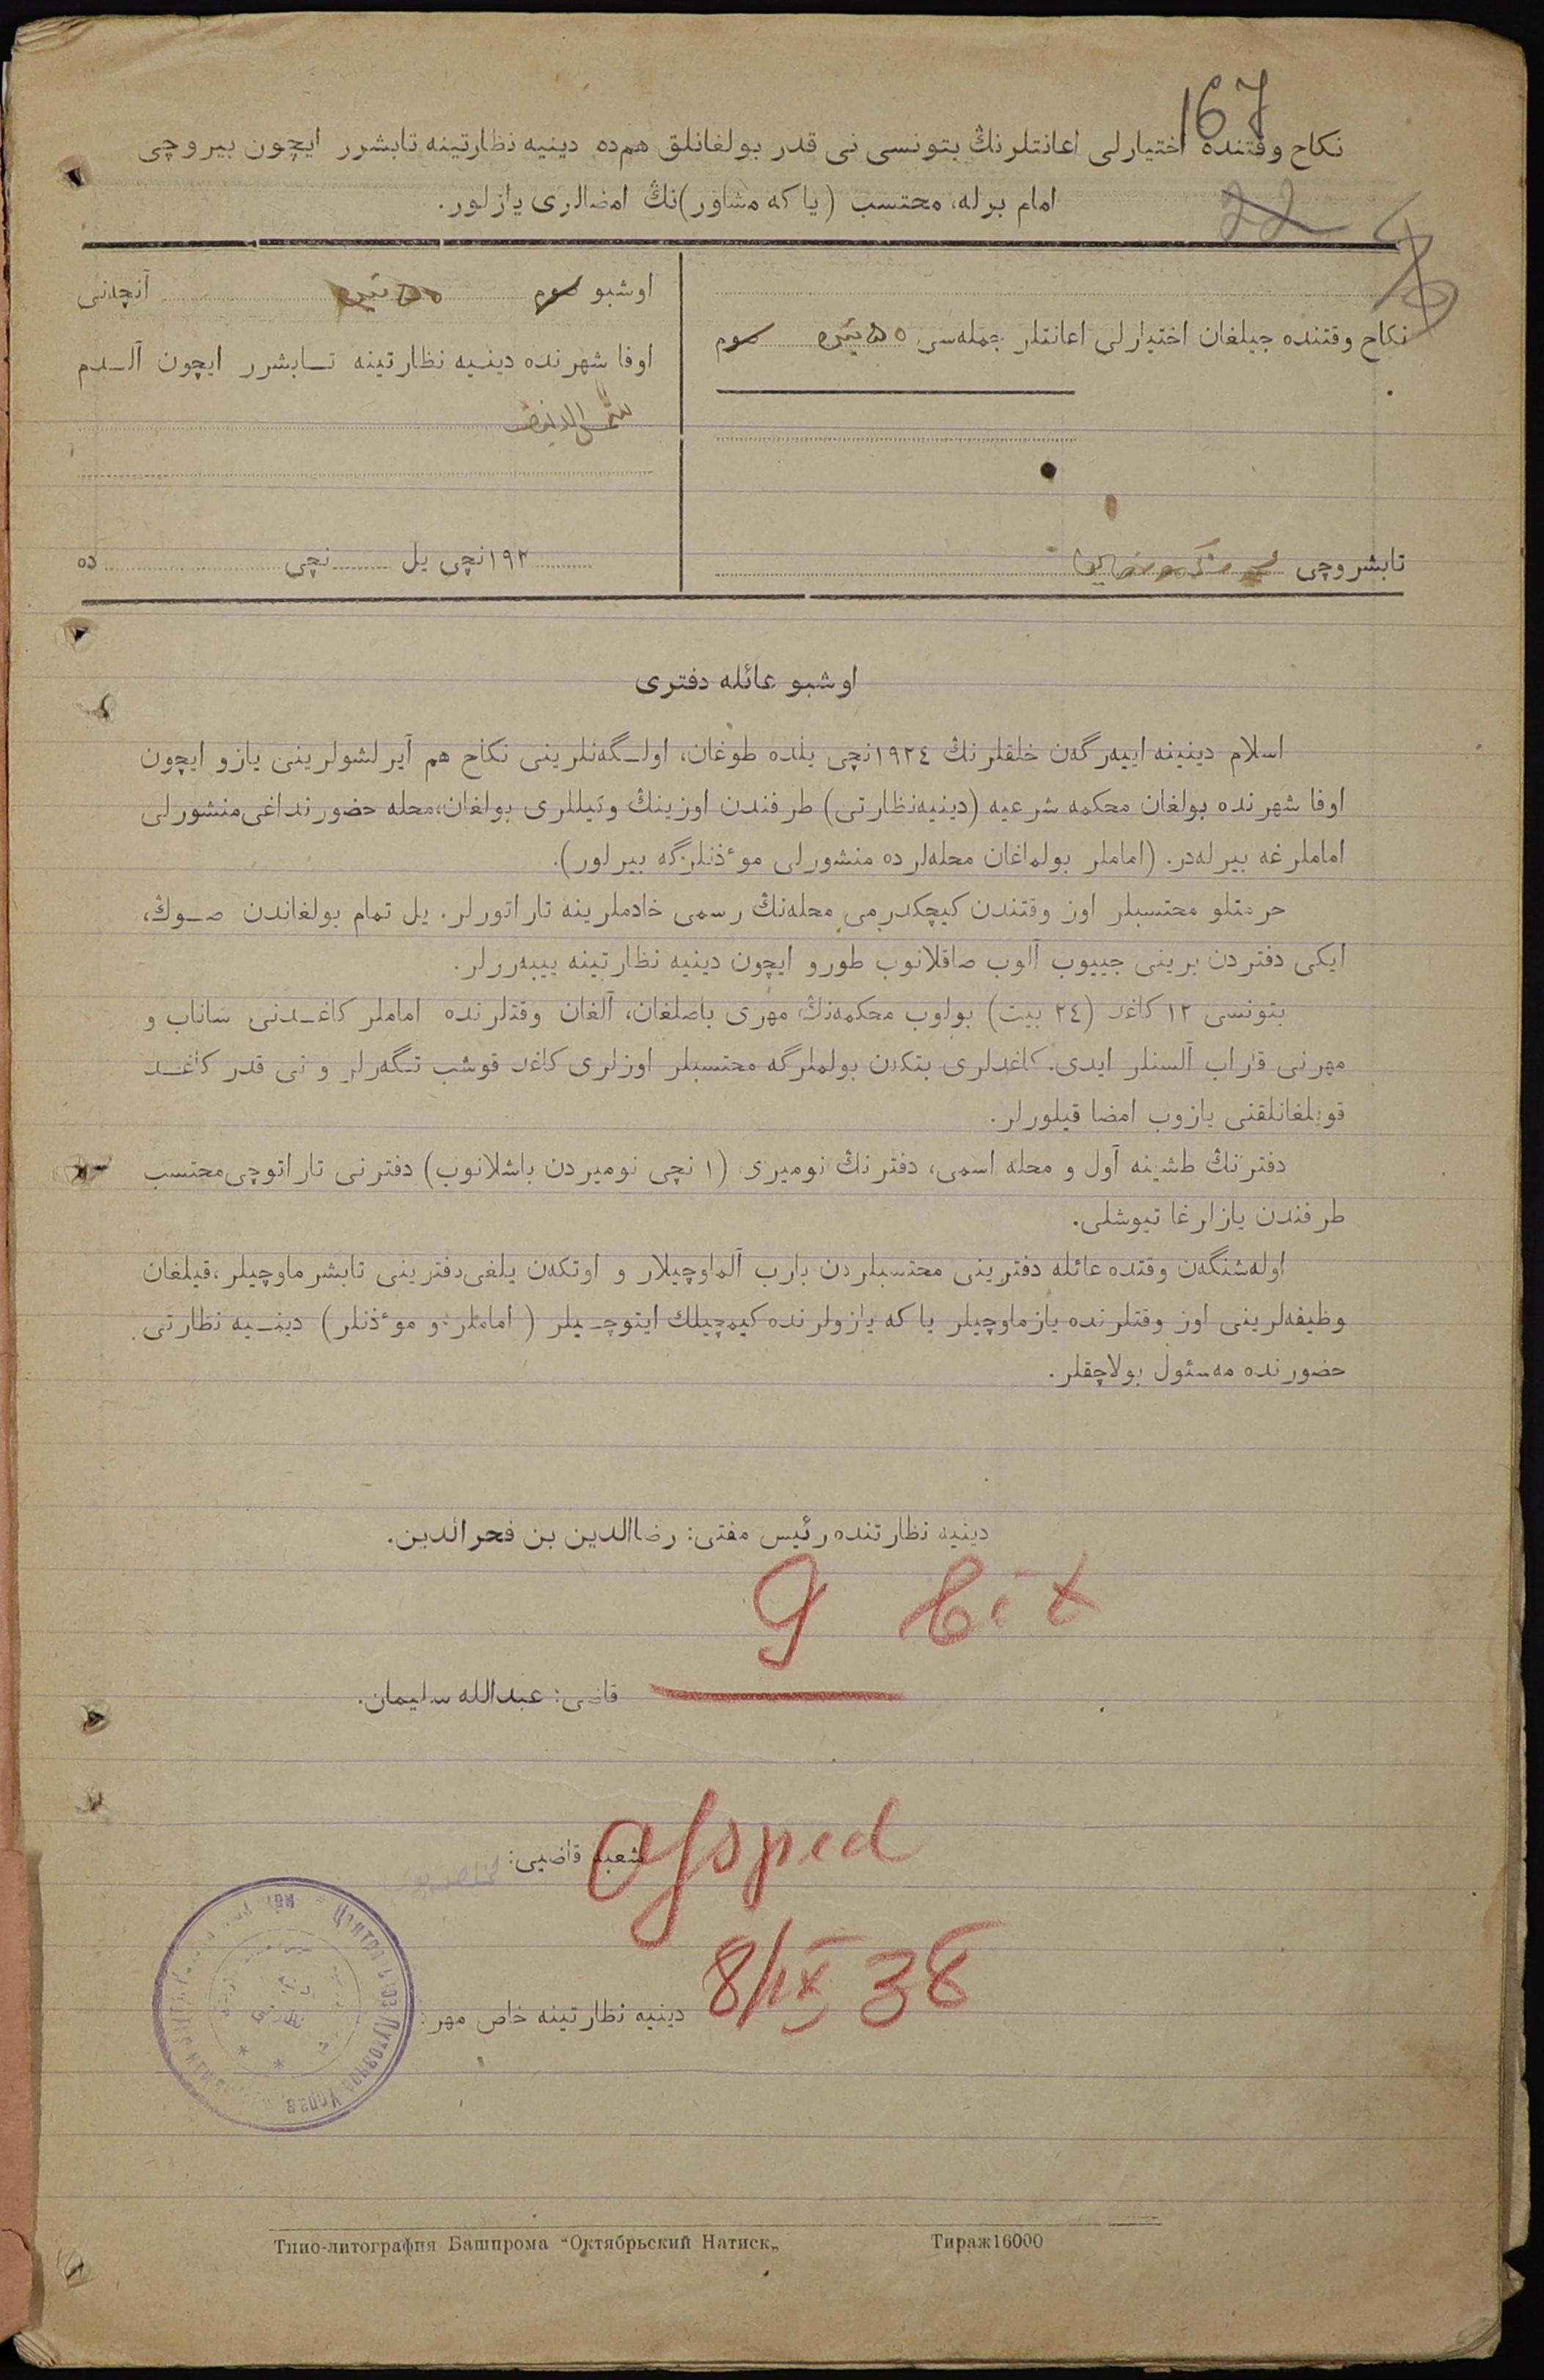 167
نكاح وقتنده اختيارلی اعانتلرنڭ بتونسی نی قدر بولغانلق هم‌ده دينيه نظارتينه تابشرر ايچون بيروچی
امام برله، محتسب (ياكه مشاور)نڭ امضالری يازلور.
22
نكاح وقتنده جيلغان اختيارلی اعانتلر جمله‌سی ٥٠ تين صوم
تابشروچی
اوشبو صوم ٥٠ تين آنچه‌نی
اوفا شهرنده دينيه نظارتينه تابشرر ايچون آلدم
١٩٢ نچی يل نچی ده
اوشبو عائله دفتری
اسلام دينينه اييه‌رگه‌ن خلقلرنڭ ١٩٢٤نچی يلده طوغان، اولگه‌نلرينی نكاح هم آيرلشولرينی يازو ايچون
اوفا شهرنده بولغان محكمه شرعيه (دينيه‌نظارتی) طرفندن اوزينڭ وكيللری بولغان،محله حضورنداغی‌منشورلی
اماملرغه بيرله‌در. (اماملر بولماغان محله‌لرده منشورلی موٴذنلرگه بيرلور).
حرمتلو محتسبلر اوز وقتندن كيچكدرمی محله‌نڭ رسمی خادملرينه تاراتورلر. يل تمام بولغاندن صوڭ،
ايكی دفتردن برينی جييوب آلوب صاقلانوب طورو ايچون دينيه نظارتينه ييبه‌ررلر.
بتونسی ١٢ كاغد (٢٤ بيت) بولوب محكمه‌نڭ مهری باصلغان، آلغان وقتلرنده اماملر كاغدنی ساناب و
مهرنی قاراب آلسنلر ايدی. كاغدلری بتكان بولملرگه محتسبلر اوزلری كاغد قوشب تگه‌رلر و نی قدر كاغد
قويلغانلقنی يازوب امضا قيلورلر.
دفترنڭ طشينه آول و محله اسمی، دفترنڭ نوميری (١ نچی نوميردن باشلانوب) دفترنی تاراتوچی‌محتسب
طرفندن يازارغا تيوشلی.
اوله‌شنگه‌ن وقتده عائله دفترينی محتسبلردن بارب آلماوچيلار و اوتكه‌ن يلغی‌دفترينی تابشرماوچيلر،قيلغان
وظيفه‌لرينی اوز وقتلرنده يازماوچيلر ياكه يازولرنده كيمچيلك ايتوچيلر (اماملر و موٴذنلر) دينيه نظارتی
حضورنده مه‌سئول بولاچقلر.
دينيه نظارتنده رئيس مفتی: رضاالدين بن فخرالدين.
9 bit
قاضی: عبدالله سليمان.
شعبه قاضيی:
8/IX 38
دينيه نظارتينه خاص مهر:
Типо-литография Башпрома “Октябрьский Натиск„ Тираж16000